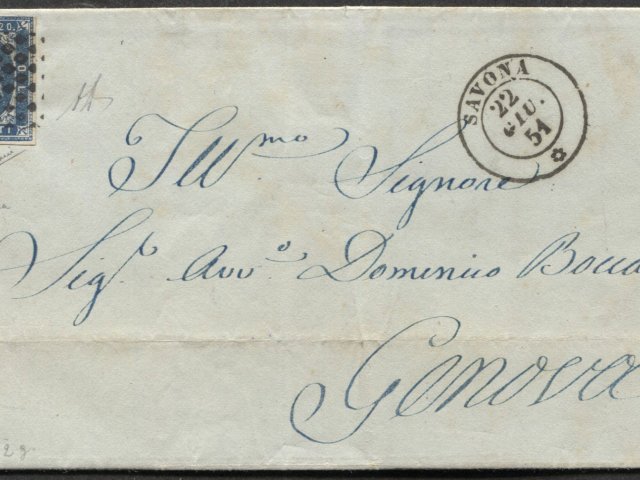 C. 20
SAVONA
22
GIU.
51
Ill.mo Signore
Sig.r Avv.o Domenico Bocca
Genova
2 g